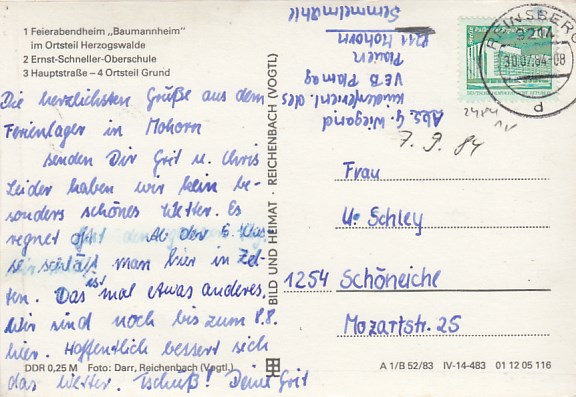 1 Feierabendheim „Baumannheim"
im Ortsteil Herzogswalde
2 Ernst-Schneller-Oberschule
3 Hauptstraße – 4 Ortsteil Grund
Die herzlichsten Grüße aus dem
Ferienlager in Mohorn
senden Dir Grit u. Chris
Leider haben wir kein be-
sonders schönes Wetter. Es
regnet oft. Ab der 6. Klasse
schläft man hier in Zel-
ten. Das ist mal etwas anderes.
Wir sind noch bis zum 8.8.
hier. Hoffentlich bessert sich
das Wetter. Tschüß! Deine Grit
DDR 0,25 M Foto: Darr, Reichenbach (Vogtl.)
BILD UND HEIMAT · REICHENBACH (VOGTL)
Abs. G. Wiegand
Kinderferienl. des
VEB Plamag
Plauen
8211 Mohorn
Semmelmühle
REINSBERG
9214
30.07.84-08
d
7. 9. 84
Frau
U. Schley
1254 Schöneiche
Mozartstr. 25
A 1/B 52/83 IV-14-483 01 12 05 116